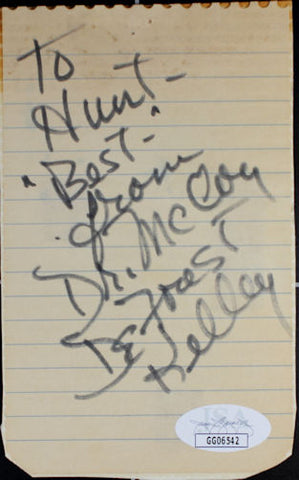 To
Hunt-
"Best-"
from
Dr. McCoy
DeForest
Kelley
JSA
GG06542